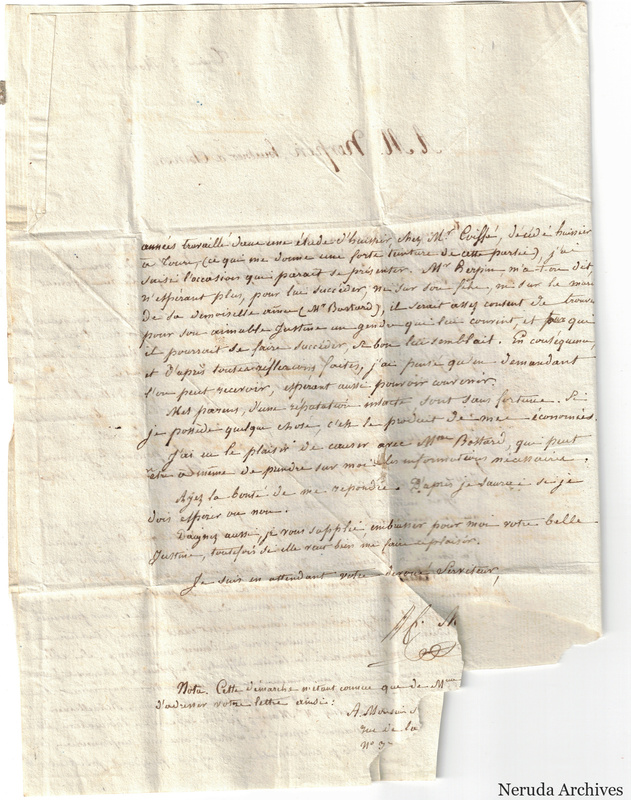 années travaillé dans une étude d'huissier chez Mr Coiffé, décédé huissier
à Tours, (ce qui me donne une forte teinture de cette partie), j'ai
saisi l'occasion qui paraît se présenter. Mr Herpin m'a-t-on dit
n'espérant plus, pour lui succéder, ni sur son fils, ni sur le mari
de sa demoiselle aînée (Mr Bottard), il serait assez content de trouver
pour son aimable Justine un gendre qui lui convint, et par qui
il pourrait se faire succéder, si bon lui semblait. En conséquence,
et d'après toutes réflexions faites, j'ai pensé qu'en demandant
l'on peut recevoir, espérant aussi pouvoir convenir.
Mes parens, d'une réputation intacte sont sans fortune. Si
je possède quelque chose, c'est le produit de mes économies.
J'ai eu le plaisir de causer avec Mme Bottard, qui peut
être à même de prendre sur moi les informations nécessaires.
Ayez la bonté de me répondre. D'après je saurai si je
dois espérer ou non.
Daignez aussi, je vous supplie embrasser pour moi votre belle
Justine, toutefois si elle veut bien me faire ce plaisir.
Je suis en attendant votre dévoué Serviteur,
Nota. Cette démarche n'étant connue que de Mme
d'adresser votre lettre ainsi:
A Monsieur
rue de la
N° 3
Neruda Archives